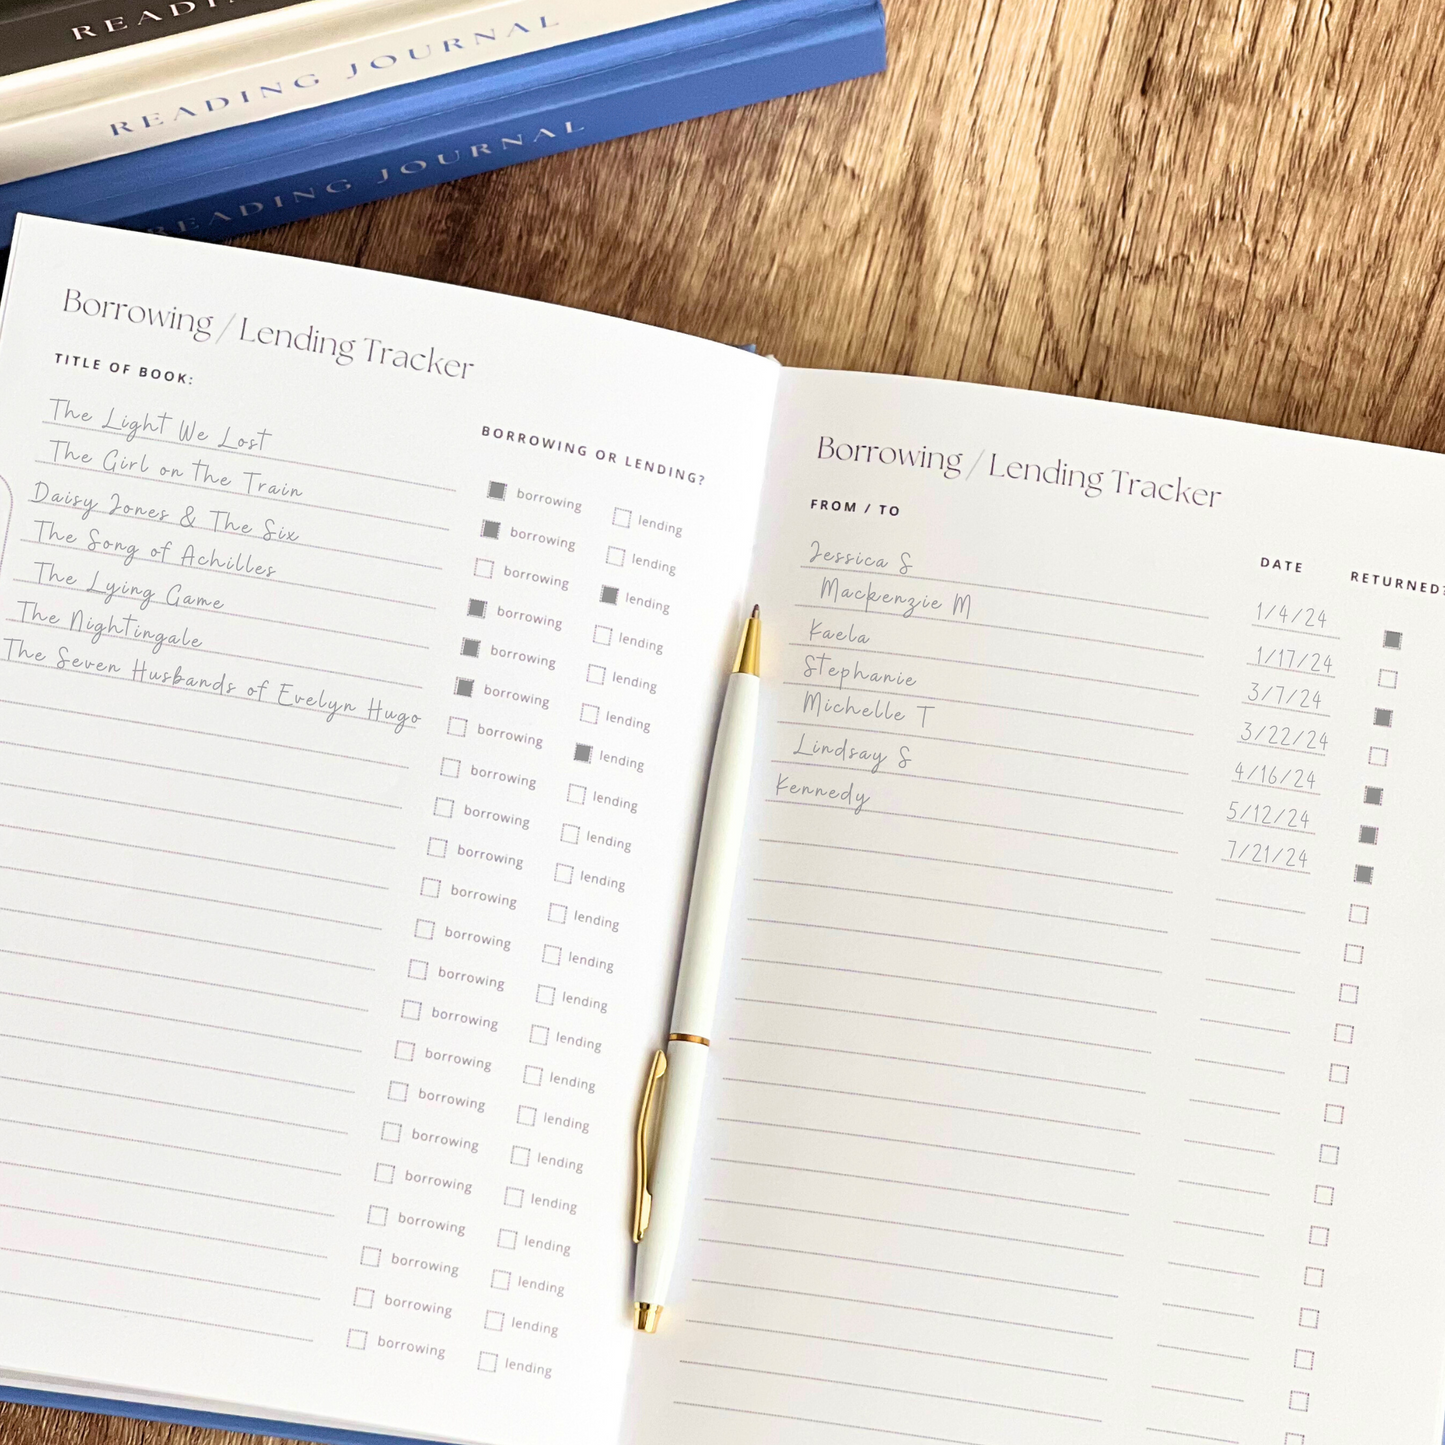 READI
READING JOURNAL
READING JOURNAL
Borrowing / Lending Tracker
TITLE OF BOOK:
BORROWING OR LENDING?
The Light We Lost
borrowing lending
The Girl on the Train
borrowing lending
Daisy Jones & The Six
borrowing lending
The Song of Achilles
borrowing lending
The Lying Game
borrowing lending
The Nightingale
borrowing lending
The Seven Husbands of Evelyn Hugo
borrowing lending
borrowing lending
borrowing lending
borrowing lending
borrowing lending
borrowing lending
borrowing lending
borrowing lending
borrowing lending
borrowing lending
borrowing lending
borrowing lending
borrowing lending
borrowing lending
borrowing lending
borrowing lending
Borrowing / Lending Tracker
FROM / TO DATE RETURNED?
Jessica S 1/4/24
Mackenzie M 1/17/24
Kaela 3/7/24
Stephanie 3/22/24
Michelle T 4/16/24
Lindsay S 5/12/24
Kennedy 7/21/24